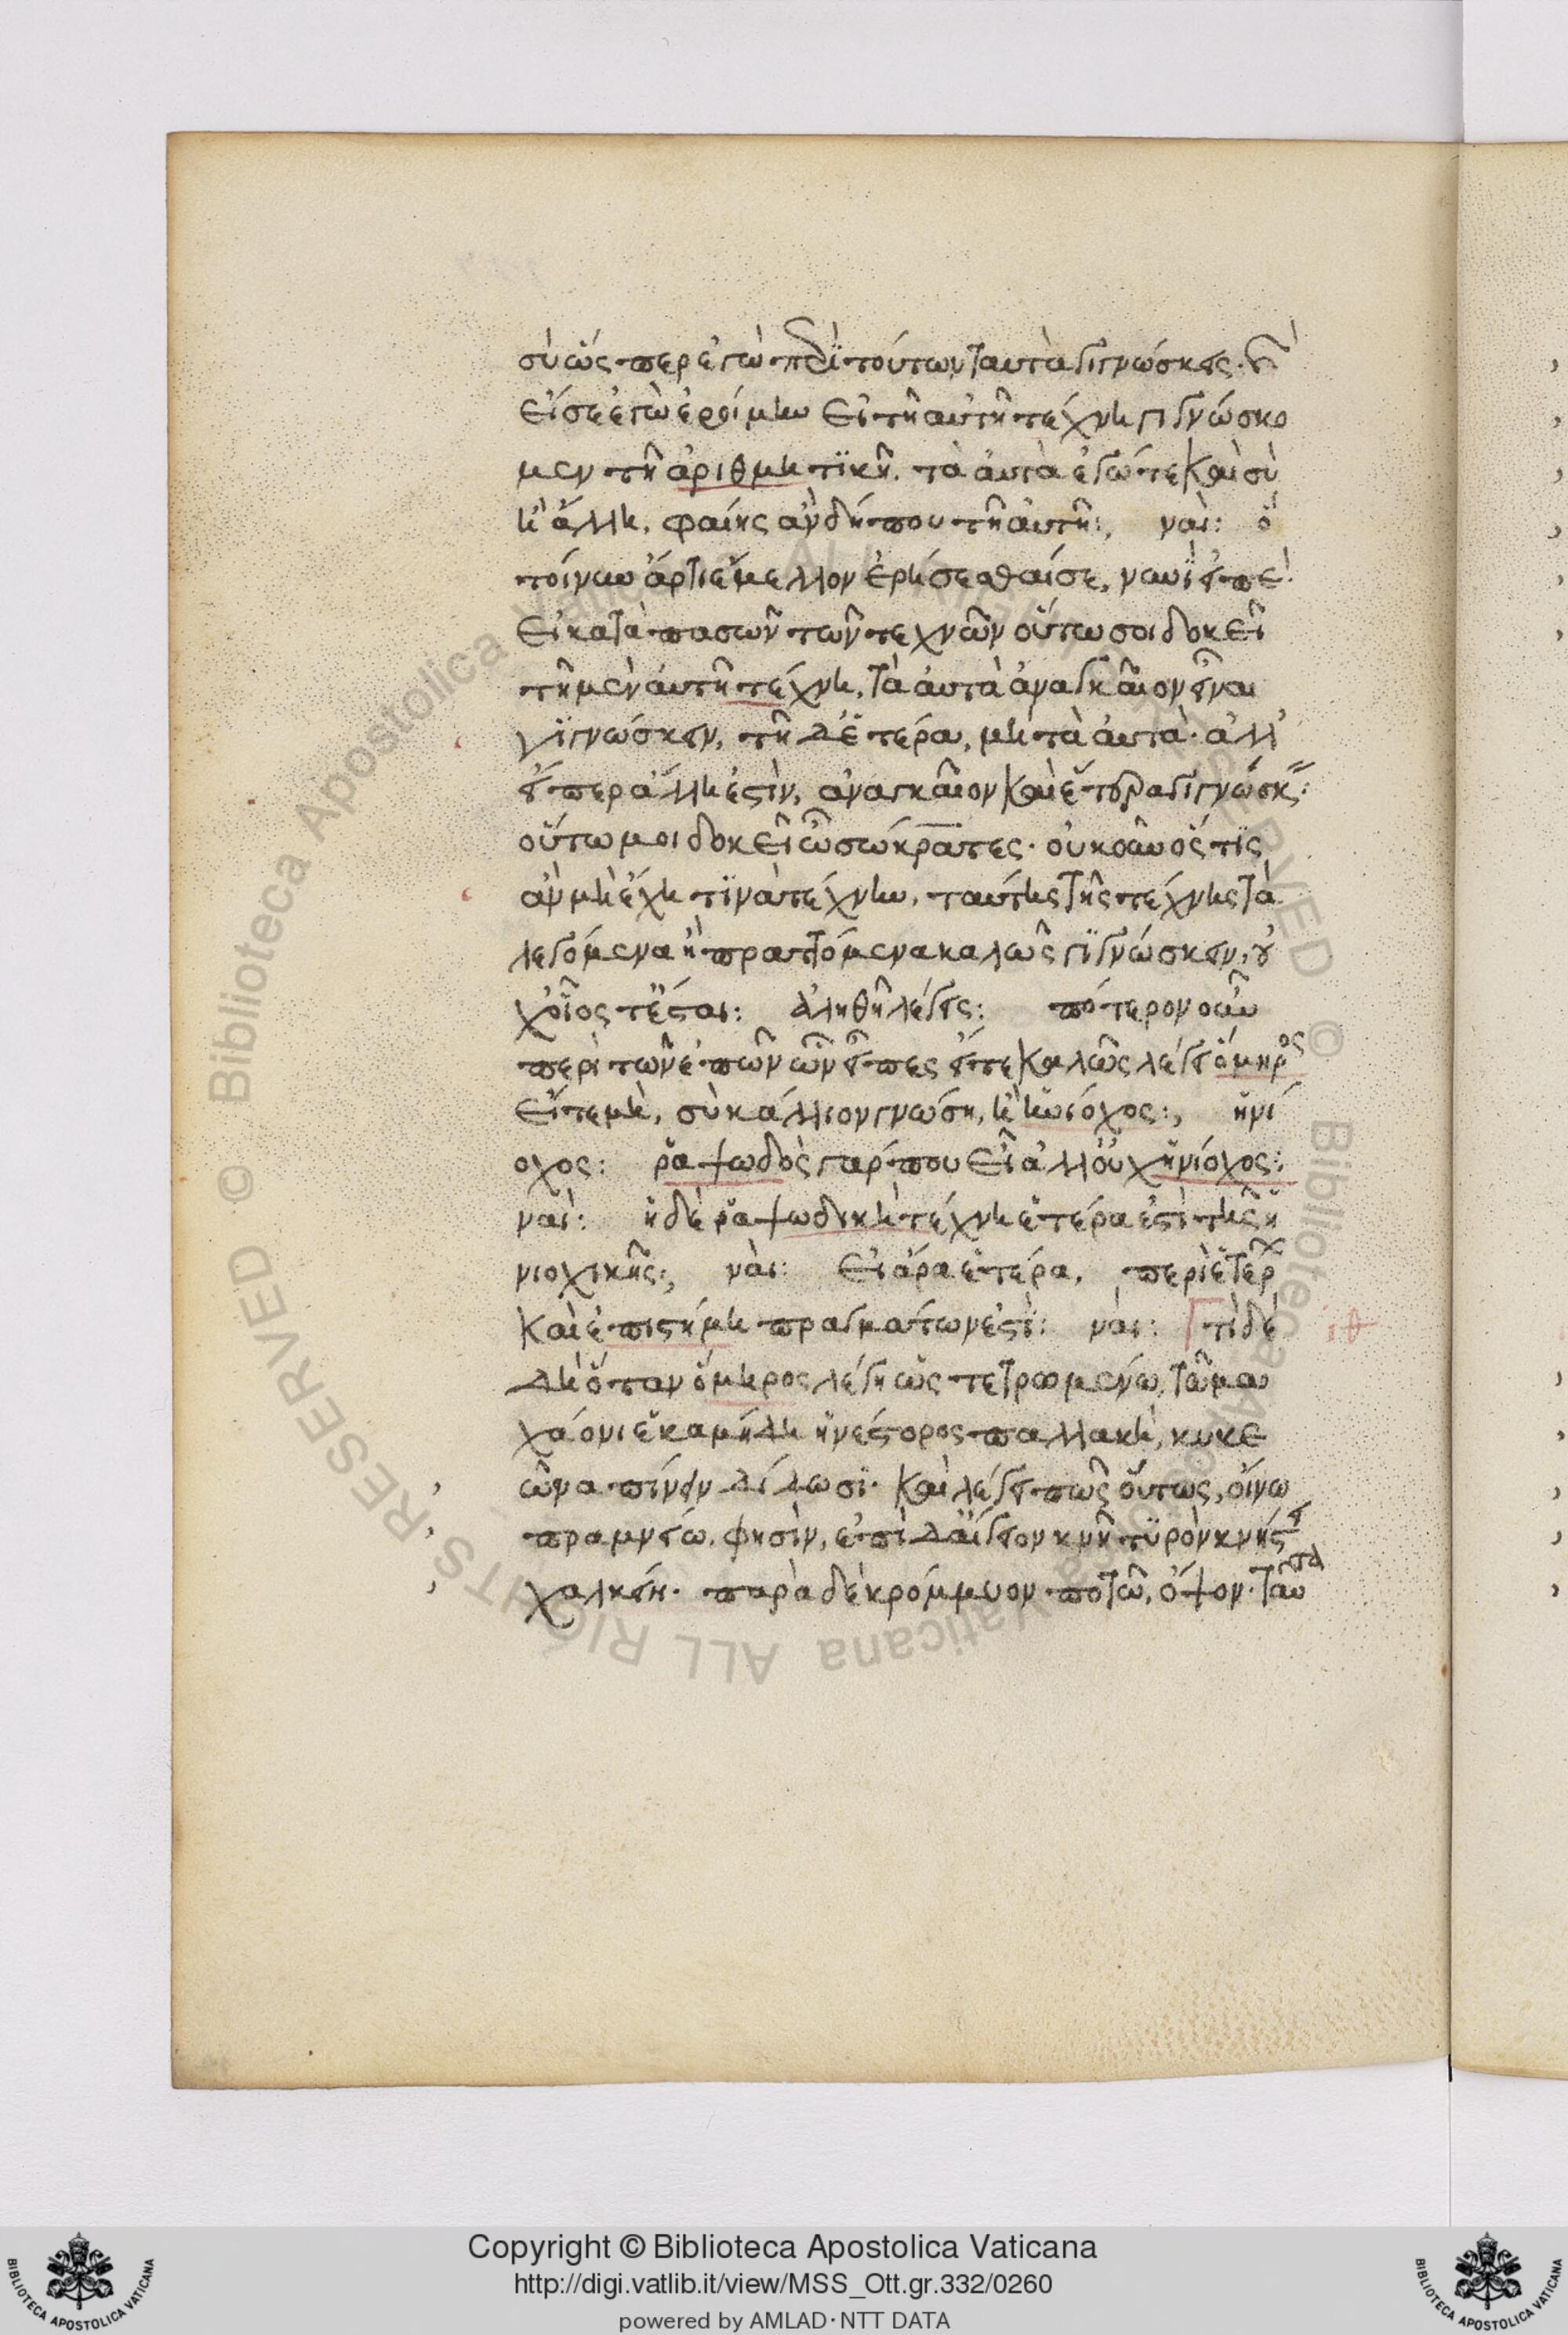 σὺ ὥσπερ ἐγὼ περὶ τούτων ταυτὰ γιγνώσκεις· καὶ
εἴ σε ἐγὼ ἐροίμην εἰ τῆ αὐτῆ τέχνη γιγνώσκο
μεν τῆ ἀριθμητικῆ. τὰ αὐτὰ ἐγώ τε καὶ σὺ
ἢ ἄλλη, φαίης ἂν δήπου τῆ αὐτῆ:, ναὶ: ὅ
τοίνυν ἄρτι ἔμελλον ἐρήσεσθαί σε, νυνὶ εἰπέ.
εἰ κατὰ πασῶν τῶν τεχνῶν οὕτω σοι δοκεῖ
τῆ μὲν αὐτῆ τέχνη, τὰ αὐτὰ ἀναγκαῖον εἶναι
γιγνώσκειν, τῆ δ' ἑτέρα, μὴ τὰ αὐτά· ἀλλ'
εἴπερ ἄλλη ἐστὶν, ἀναγκαῖον καὶ ἕτερα γιγνώσκειν:
οὕτω μοι δοκεῖ ὦ σώκρατες· οὐκοῦν ὅστις
ἂν μὴ ἔχη τινὰ τέχνην, ταύτης τῆς τέχνης τὰ
λεγόμενα ἢ πραττόμενα καλῶς γιγνώσκειν, οὐ
χ οἷός τ' ἔσται: ἀληθῆ λέγεις: πότερον οὖν
περὶ τῶν ἐπῶν ὧν εἶπες εἴτε καλῶς λέγει ὅμηρος
εἴτε μὴ, σὺ κάλλιον γνώση, ἢ ἡνίοχος:, ἡνί
οχος: ῥαψωδὸς γάρ που εἶ ἀλλ' οὐχ ἡνίοχος:
ναὶ: ἡ δὲ ῥαψωδικὴ τέχνη ἑτέρα ἐστὶ τῆς ἡ
νιοχικῆς:, ναὶ: εἰ ἄρα ἑτέρα, περὶ ἑτέρων
καὶ ἐπιστήμη πραγμάτων ἐστί: ναὶ: τί δὲ ιθ
δὴ ὅταν ὅμηρος λέγη ὡς τετρωμένω τῶ μα
χάονι ἑκαμήδη ἡ νέστορος παλλακὴ, κυκε
ῶνα πίνειν δίδωσι· καὶ λέγει πως οὕτως, οἴνω
πραμνείω, φησὶν, ἐπὶ δ' αἴγειον κνῆ τυρὸν κνήστει
χαλκείη· παρὰ δὲ κρόμμυον ποτῶ, ὄψον· ταῦτα
Copyright © Biblioteca Apostolica Vaticana
http://digi.vatlib.it/view/MSS_Ott.gr.332/0260
powered by AMLAD·NTT DATA